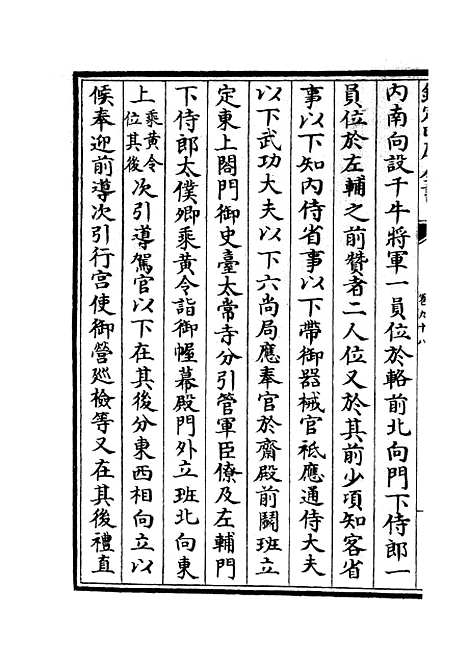 內南向設千牛將軍一員位於輅前北向門下侍郎一
員位於左輔之前贊者二人位又於其前少項知客省
事以下知內侍省事以下帶御器械官祗應通侍大夫
以下武功大夫以下六尚局應奉官於齋殿前闘班立
定東上閤門御史臺太常寺分引管軍臣僚及左輔門
下侍郎太僕卿乘黃令詣御幄幕殿門外立班北向東
上乘黃令位其後次引導駕官以下在其後分東西相向立以
候奉迎前導次引行宮使御營廵檢等又在其後禮直